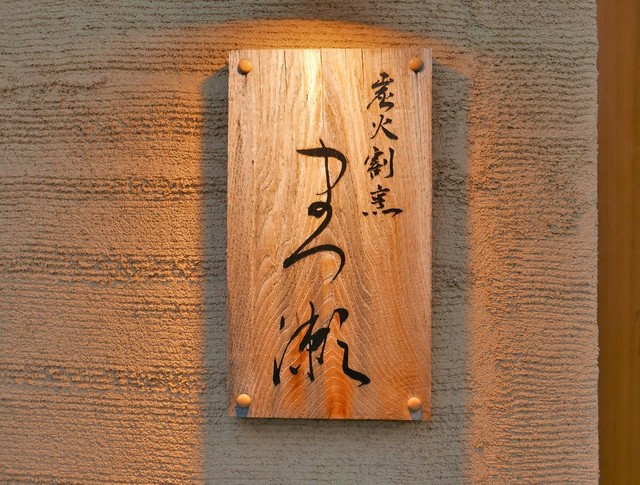 炭火割烹
まつ瀬